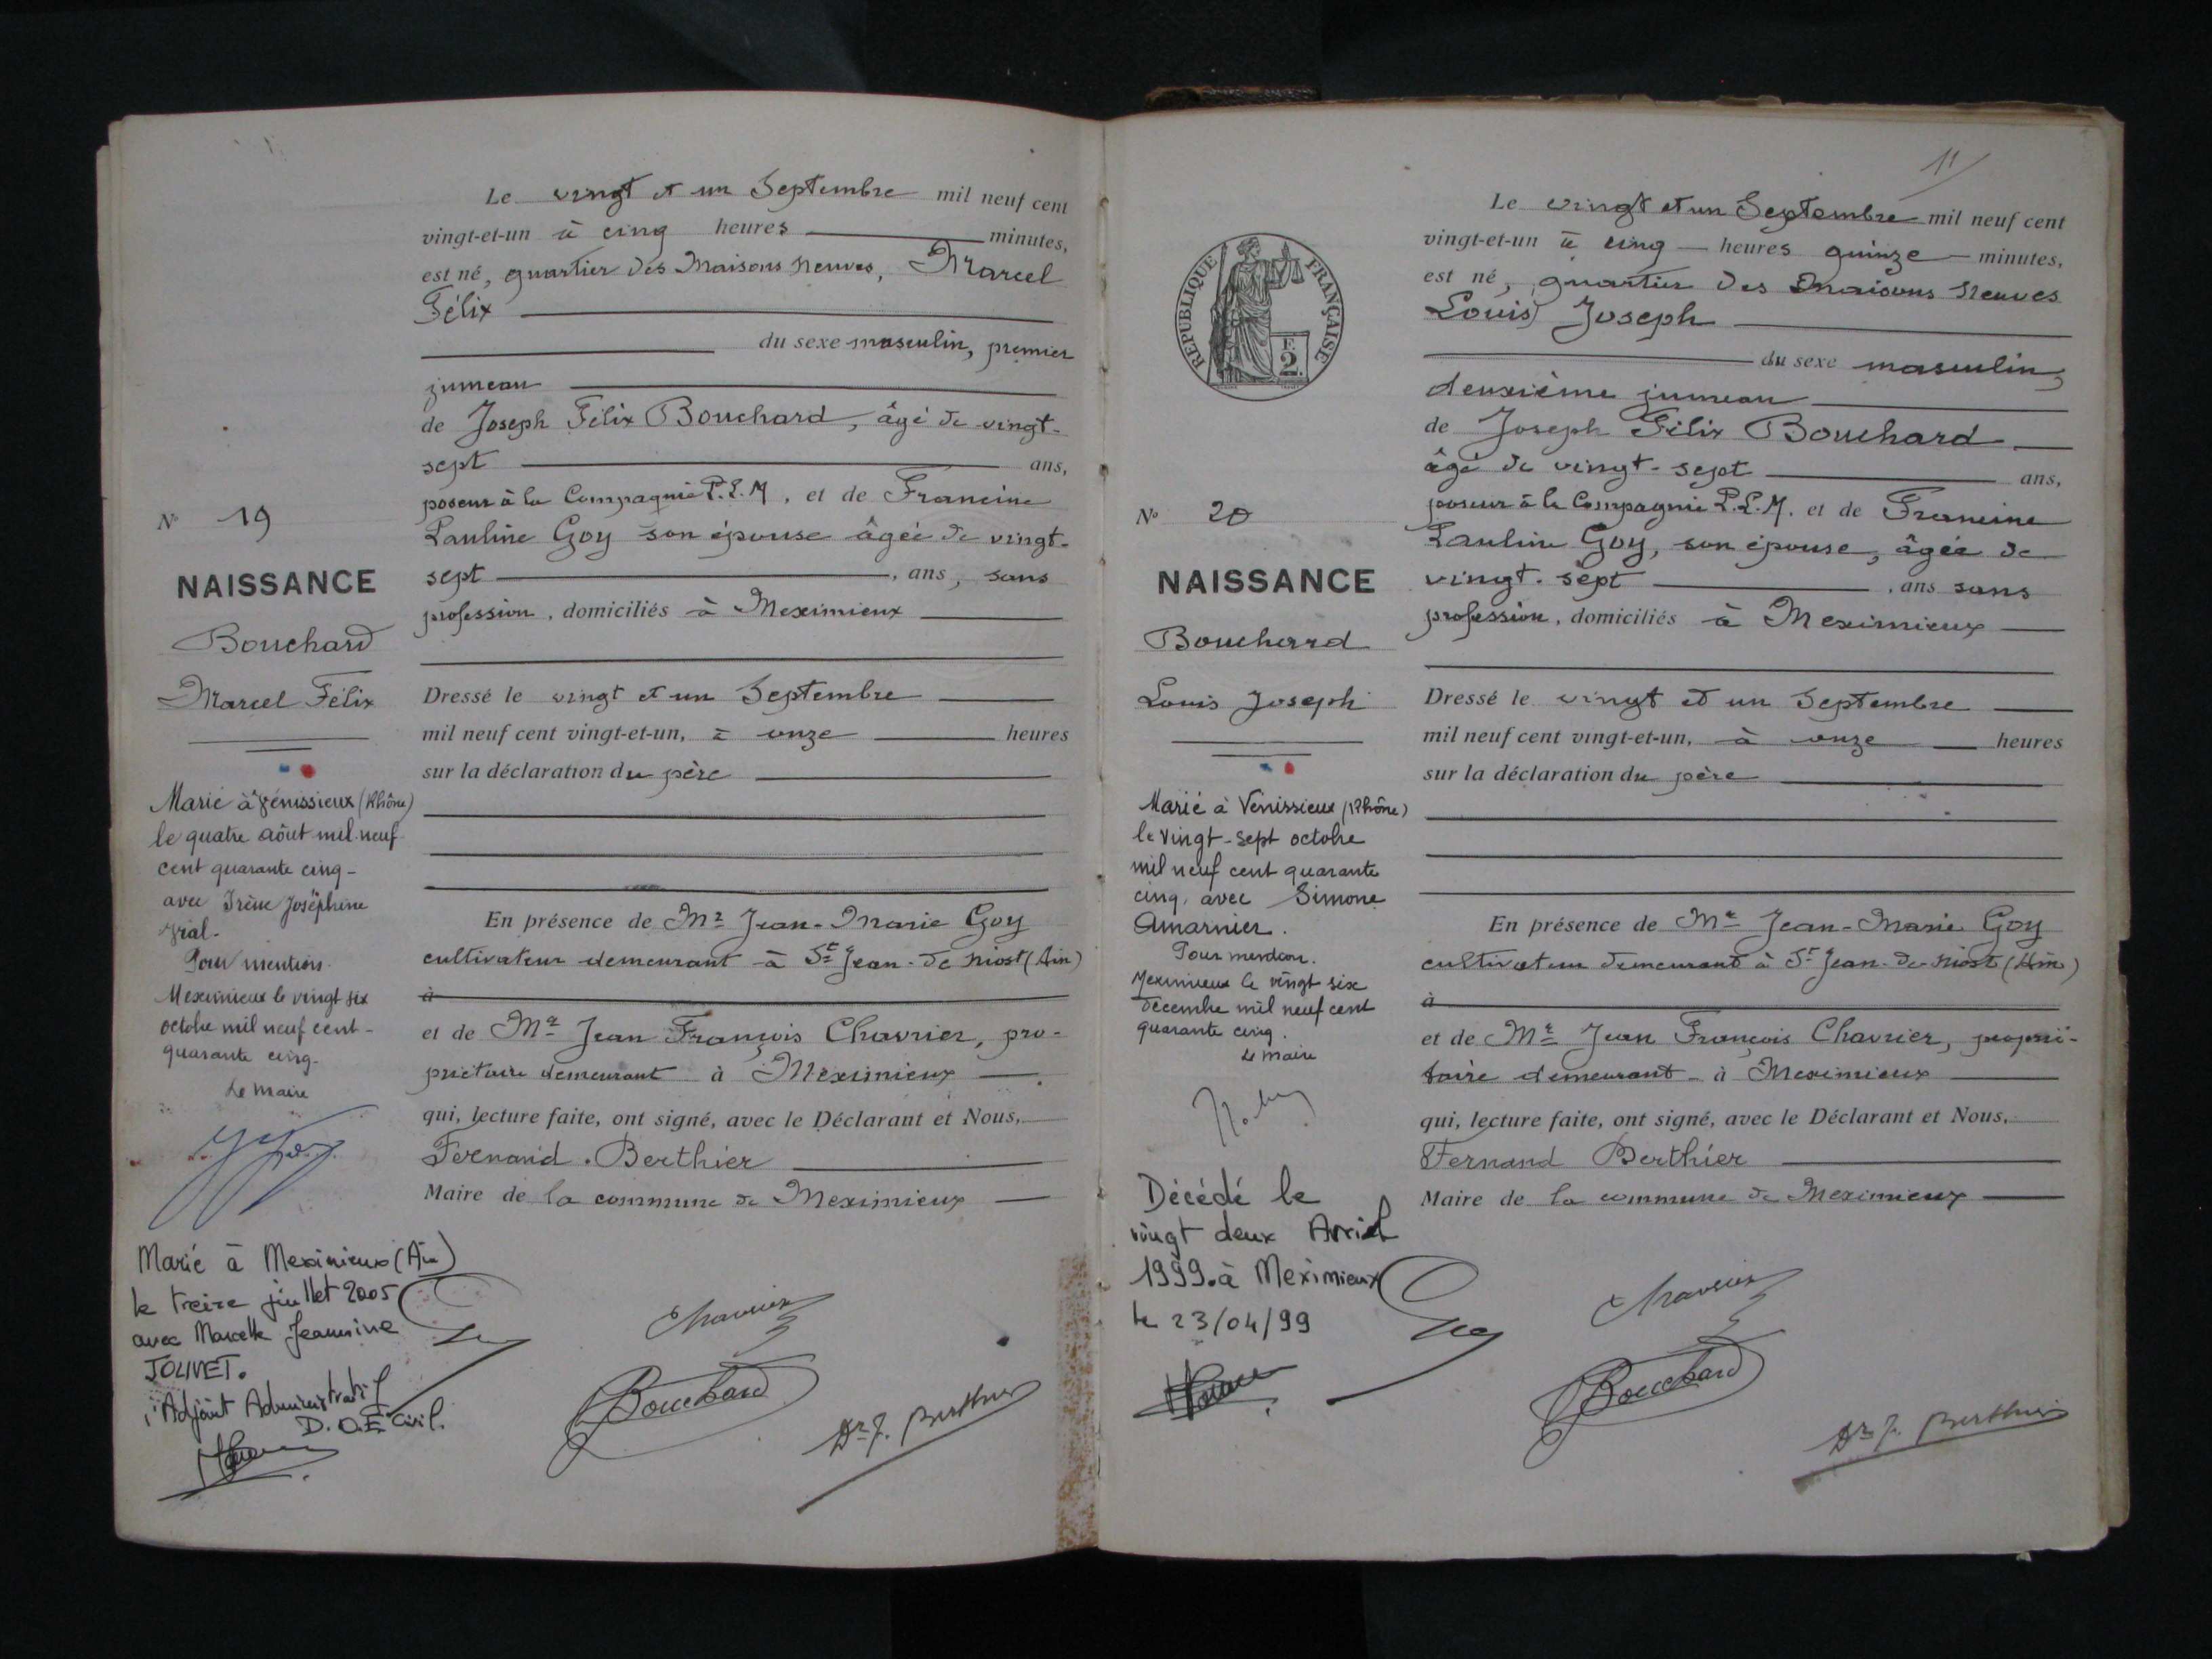 Le vingt et un Septembre mil neuf cent
vingt-et-un à cinq heures minutes,
est né, quartier des Maisons Neuves, Marcel
Félix
du sexe masculin, premier
jumeau
de Joseph Félix Bouchard, âgé de vingt-
sept ans,
poseur à la Compagnie P.L.M, et de Francine
Pauline Goy son épouse âgée de vingt-
sept, ans, sans
profession, domiciliés à Meximieux
Dressé le vingt et un Septembre
mil neuf cent vingt-et-un, à onze heures
sur la déclaration du père
En présence de Mr Jean-Marie Goy
cultivateur demeurant à St Jean-de Niost (Ain)
à
et de Mr Jean François Chavrier, pro-
priétaire demeurant à Meximieux
qui, lecture faite, ont signé, avec le Déclarant et Nous,
Fernand Berthier
Maire de la commune de Meximieux
No 19
NAISSANCE
Bouchard
Marcel Félix
Marié à Vénissieux (Rhône)
le quatre août mil neuf
cent quarante cinq -
avec Irène Joséphine
Pour mention.
Meximieux le vingt six
octobre mil neuf cent -
quarante cinq -
Le maire
Marié à Meximieux (Ain)
le treize juillet 2005
avec Marcelle Jeannine
JOLIVET.
Adjoint Administratif
D. O.E Civil.
Chavrier
Bouchard
Dr F. Berthier
11
RÉPUBLIQUE FRANÇAISE
F.
2.
Le vingt et un Septembre mil neuf cent
vingt-et-un à cinq heures quinze minutes,
est né, quartier des Maisons Neuves
Louis Joseph
du sexe masculin,
deuxième jumeau
de Joseph Félix Bouchard
âgé de vingt-sept ans,
poseur à la Compagnie P.L.M. et de Francine
Pauline Goy, son épouse, âgée de
vingt-sept, ans sans
profession, domiciliés à Meximieux
Dressé le vingt et un Septembre
mil neuf cent vingt-et-un, à onze heures
sur la déclaration du père
En présence de Mr Jean-Marie Goy
cultivateur demeurant à St Jean-de-Niost (Ain)
à
et de Mr Jean François Chavrier, proprié-
taire demeurant à Meximieux
qui, lecture faite, ont signé, avec le Déclarant et Nous,
Fernand Berthier
Maire de la commune de Meximieux
No 20
NAISSANCE
Bouchard
Louis Joseph
Marié à Vénissieux (Rhône)
le vingt-sept octobre
mil neuf cent quarante
cinq, avec Simone
Amarnier.
Pour mention.
Meximieux le vingt six
décembre mil neuf cent
quarante cinq.
Le maire
Décédé le
vingt deux Avril
1999. à Meximieux
le 23/04/99
Chavrier
Bouchard
Dr F. Berthier